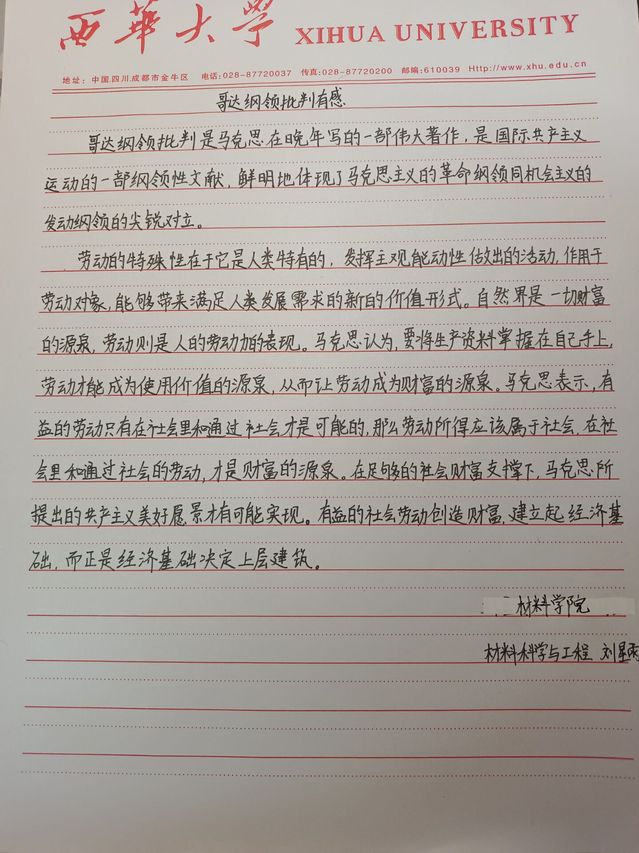 西華大学 XIHUA UNIVERSITY
地址：中国.四川.成都市金牛区 电话:028-87720037 传真:028-87720200 邮编:610039 Http://www.xhu.edu.cn
哥达纲领批判有感
哥达纲领批判是马克思在晚年写的一部伟大著作，是国际共产主义
运动的一部纲领性文献，鲜明地体现了马克思主义的革命纲领同机会主义的
发动纲领的尖锐对立。
劳动的特殊性在于它是人类特有的，发挥主观能动性做出的活动，作用于
劳动对象，能够带来满足人类发展需求的新的价值形式。自然界是一切财富
的源泉，劳动则是人的劳动力的表现。马克思认为，要将生产资料掌握在自己手上，
劳动才能成为使用价值的源泉，从而让劳动成为财富的源泉。马克思表示，有
益的劳动只有在社会里和通过社会才是可能的，那么劳动所得应该属于社会，在社
会里和通过社会的劳动，才是财富的源泉。在足够的社会财富支撑下，马克思所
提出的共产主义美好愿景才有可能实现。有益的社会劳动创造财富，建立起经济基
础，而正是经济基础决定上层建筑。
材料学院
材料科学与工程 刘星雨